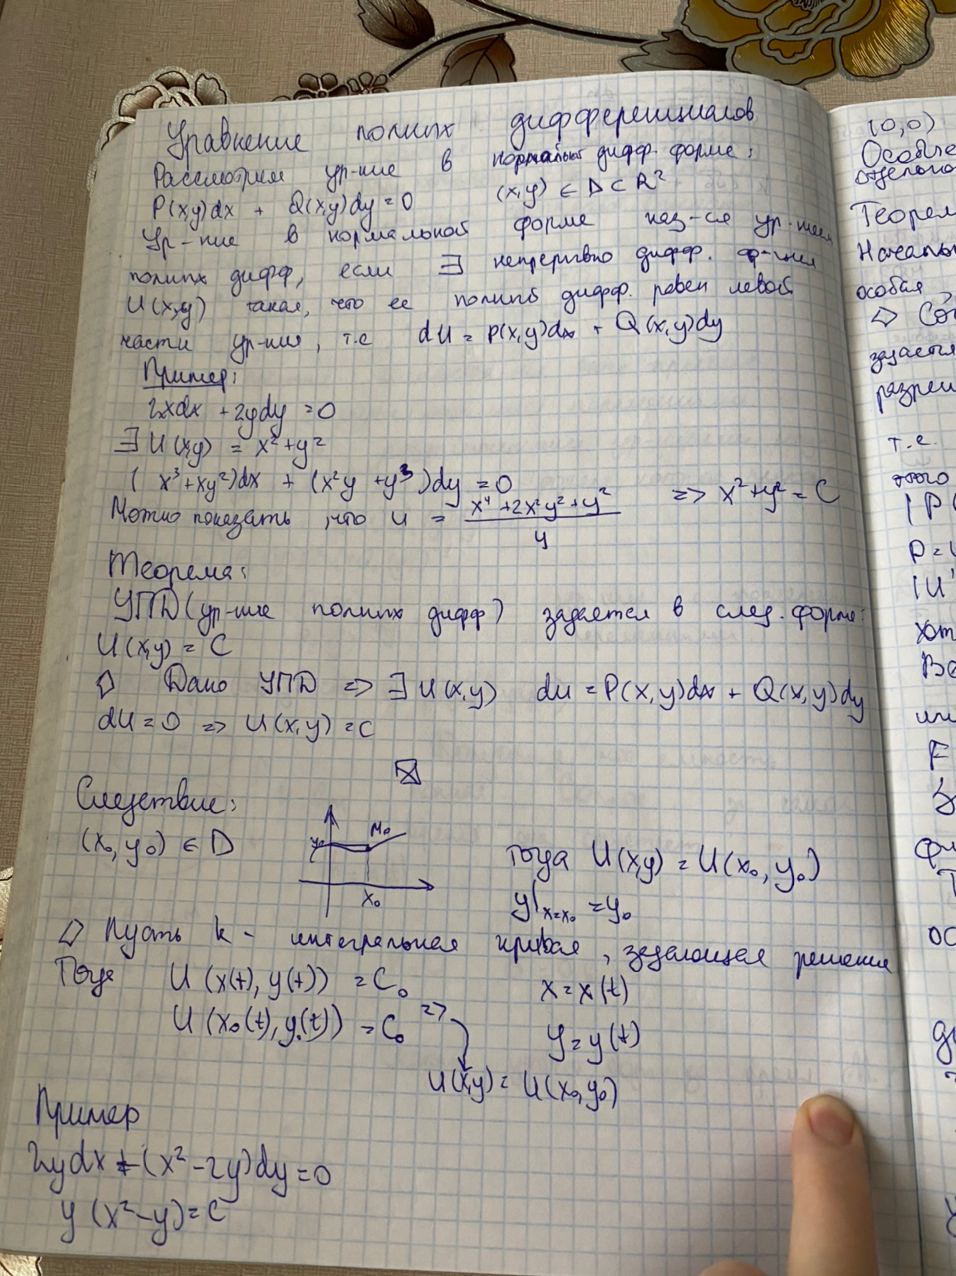 Уравнение полных дифференциалов
Рассмотрим ур-ние в нормальной дифф. форме:
P(x,y)dx + Q(x,y)dy = 0 (x,y) ∈ D ⊂ R²
Ур-ние в нормальной форме наз-ся ур-нием
полных дифф, если ∃ непрерывно дифф. ф-ция
U(x,y) такая, что ее полный дифф. равен левой
части ур-ния, т.е dU = P(x,y)dx + Q(x,y)dy
Пример:
2xdx + 2ydy = 0
∃ U(x,y) = x² + y²
(x³+xy²)dx + (x²y + y³)dy = 0 => x² + y² = C
Можно показать, что u = (x⁴ + 2x²y² + y²)/4
Теорема:
УПД (ур-ние полных дифф) задается в след. форме:
U(x,y) = C
▷ Дано УПД => ∃ U(x,y) du = P(x,y)dx + Q(x,y)dy
dU = 0 => U(x,y) = C
Следствие:
(x₀, y₀) ∈ D
y₀ M₀
x₀
Тогда U(x,y) = U(x₀, y₀)
y|x=x₀ = y₀
▷ Пусть k - интегральная кривая, задающая решение
Тогда U(x(t), y(t)) = C₀ x = x(t)
U(x₀(t), y₀(t)) = C₀ => y = y(t)
U(x,y) = U(x₀,y₀)
Пример
2ydx + (x² - 2y)dy = 0
y(x² - y) = C
(0,0)
Особле
отдельно
Теорем
Начальн
особая
задается
разреш
т.е.
этого
P =
хот
или
F